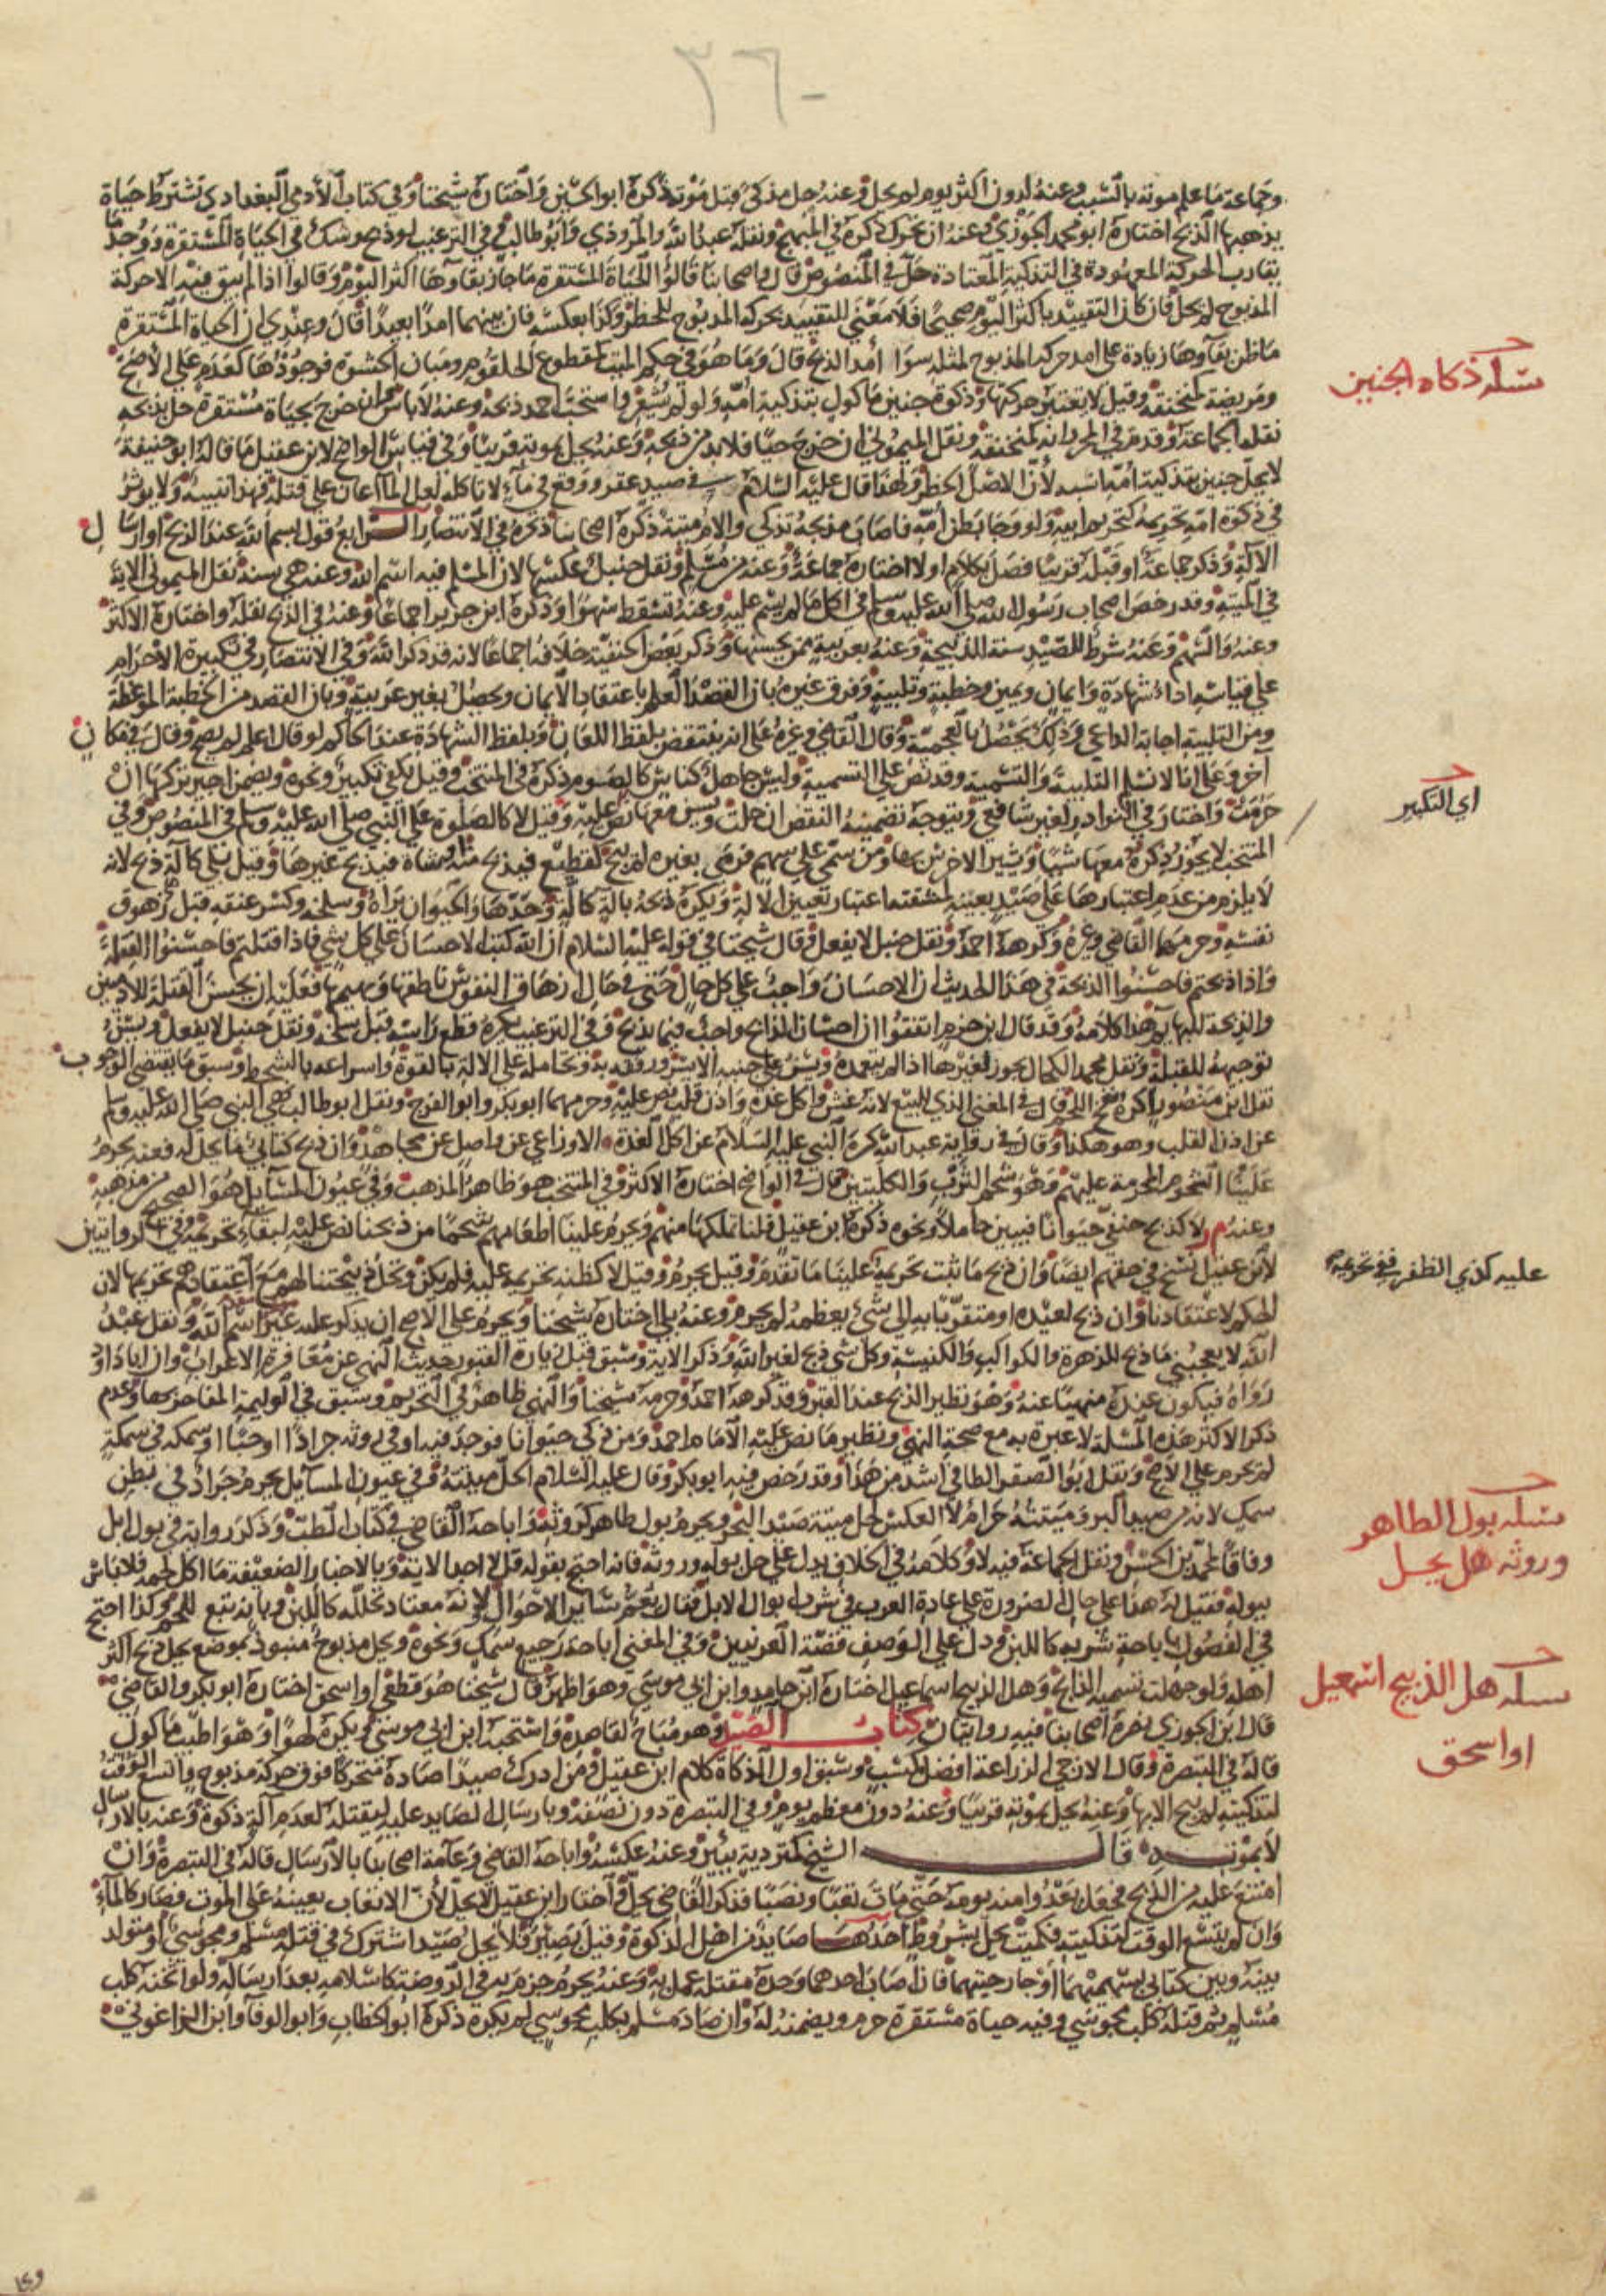 ٣٦٠
وجماعة ما علم موته بالسبب وعنه لدون اكثر يوم لم يحل وعنه حل مذكى قبل موته ذكره ابو الحسين واختاره شيخنا وفي كتاب الادمي البغدادي تشترط حياة
يذهبها الذبح اختاره ابو محمد الجوزي وعنه ان تحرك ذكره في المبهج ونقله عبد الله والمروذي وابو طالب وفي الترغيب لو ذبح وشك في الحياة المستقرة ووجد ما
يقارب الحركة المعهودة في التذكية المعتادة حل في المنصوص قال واصحابنا قالوا الحياة المستقرة ما جاز بقاوها اكثر اليوم وقالوا اذا لم يبق فيه الا حركة
المذبوح لم يحل فان كان التقييد باكثر اليوم صحيحا فلا معنى للتقييد بحركة المذبوح للحظر وكذا بعكسه فان بينهما امدا بعيدا قال وعندي ان الحياة المستقرة
ما ظن بقاوها زيادة على امد حركة المذبوح لمثله سوا امد الذبح قال وما هو في حكم الميت كمقطوع الحلقوم ومبان الحشوة فوجودها كعدم على الاصح
ومريضة كمنخنقة وقيل لا يعتبر حركتها وذكوة جنين ماكول بتذكية امه ولو لم يشعر واستحب احمد ذبحه وعنه لا باس وان خرج بحياة مستقرة حل بذبحه
نقله الجماعة وقدم في المحرر انه كمنخنقة ونقل الميموني ان خرج حيا فلا بد من ذبحه وعنه يحل بموته قريبا وفي فنياس الواضح لابن عقيل ما قاله ابو حنيفة
لا يحل جنين بتذكية امه اشبه لان الاصل الحظر ولهذا قال عليه السلام في صيد عقر ووقع في ماء لا تاكله لعل الماء اعان على قتله فهذا تنبيه ولا يوثر
في ذكوة امه تحريمه كتحريم ابيه ولو وجا بطن امه فاصاب مذبحه تذكى والام ميتة ذكره اصحابنا ذكره في الانتصار الرابع قول بسم الله عند الذبح او ارسال
الالة وذكر جماعة او قبله قريبا فصل بكلام او لا اختاره جماعة وعنه من مسلم ونقل حنبل عكسها لان المسلم فيه اسم الله وعنه هي سنة نقل الميموني الاية
في الميتة وقد رخص اصحاب رسول الله صلى الله عليه وسلم في اكل ما لم يسم عليه وعنه تسقط سهوا وذكره ابن جرير اجماعا وعنه في الذبح نقله واختاره الاكثر
وعنه والسهم وعنه شرط للصيد سنة للذبيحة وعنه بعربية ممن يحسنها وذكر بعض الحنفية خلافه اجماعا لانه قد ذكر الله وفي الانتصار في تكبيرة الاحرام
على قياسه اداء شهادة وايمان ويمين وخطبة وتلبية وفرق غيره بان القصد العلم باعتقاد الايمان ويحصل بغير عربية وبان القصد من الخطبة الموعظة
ومن التلبية اجابة الداعي وذلك يحصل بالعجمية وقال القاضي وغيره على انه ينتقض بلفظ اللعان وبلفظ الشهادة عند الحاكم لو قال اعلم لم يصح وقال في مكان
آخر وعلى انا لا نسلم التلبية والتسمية وقد نص على التسمية وليس جاهل كناس كالصوم ذكره في المنتخب وقيل يكفي تكبير ونحوه ويضمن اجير تركها ان
حرمت واختار في النوادر لغير شافعي ويتوجه تضمينه النقص ان حلت ويسن معها نص عليه وقيل لا كالصلوة على النبي صلى الله عليه وسلم في المنصوص وفي
المنتخب لا يجوز ذكره معها شيا ويشير الاخرس بها ومن سمى على سهم فرمى بغيره لم يبح كقطيع فيذبح منه او شاة فيذبح غيرها وقيل بلى كآلة ذبح لانه
لا يلزم من عدم اعتبارها على صيد بعينه لمشقته اعتبار تعيين الالة ويكره ذبحه بالة كالة وحدها والحيوان يراه وسلخه وكسر عنقه قبل زهوق
نفسه وحرمهما القاضي وغيره وكرهه احمد ونقل حنبل لا يفعل وقال شيخنا في قوله عليه السلام ان الله كتب الاحسان على كل شي فاذا قتلتم فاحسنوا القتلة
واذا ذبحتم فاحسنوا الذبحة في هذا الحديث ان الاحسان واجب على كل حال حتى في حال ازهاق النفوس ناطقها وبهيمها فعليه ان يحسن القتلة للادميين
والذبحة للبهايم هذا كلامه وقد قال ابن حزم اتفقوا ان احسان الذبح واجب فيما يذبح وفي الترغيب يكره قطع راسه قبل سلخه ونقل حنبل لا يفعل ويسن
توجيهه للقبلة ونقل محمد الكحال يجوز لغيرها اذا لم يتعمده ويسن على جنبه الايسر ورفقه به وتحامله على الالة بالقوة واسراعه بالشحط وسبق ما يقتضي الوجوب
نقل ابن منصور اكره نفخ اللحم قال في المغني الذي للبيع لانه غش واكل غدة واذن قلب نص عليه وحرمهما ابو بكر وابو الفرج ونقل ابو طالب نهى النبي صلى الله عليه وسلم
عن اذن القلب وهو هكذا وقال في رواية عبد الله كره النبي عليه السلام عن اكل الغدة الاوزاعي عن واصل عن مجاهد وان ذبح كتابي ما يحل له فعنه يحرم
علينا الشحوم المحرمة عليهم وهو شحم الثرب والكليتين قال في الواضح اختاره الاكثر وفي المنتخب هو ظاهر المذهب وفي عيون المسايل هو الصحيح من مذهبه
وعنه لا كذبح حنفي حيوانا فيبين حاملا ونحوه ذكره ابن عقيل فلنا تملكها منهم ويحرم علينا اطعامهم شحما من ذبحنا نص عليه لبقاء تحريمه وفي الروايتين
لابن عقيل نسخ في حقهم ايضا وان ذبح ما ثبت تحريمه علينا ما تقدم وقيل يحرم وقيل لا كظنه تحريمه عليه فلم يكن وتحل ذبيحتنا لهم مع اعتقادهم تحريمها لان
الحكم لاعتقادنا وان ذبح لعيده او متقربا به الى شيء يعظمه لم يحرم وعنه بلى اختاره شيخنا ويحرم على الاصح ان يذكر عليه غير اسم الله ونقل عبد
الله لا يعجبني ما ذبح للزهرة والكواكب والكنيسة وكل شي ذبح لغير الله وذكر الاية وسبق قبل زيارة القبور حديث النهي عن معاقرة الاعراب وان ابا داود
رواه فيكون عنده منهيا عنه وهو نظير الذبح عند القبر وقد كرهه احمد وحرمه شيخنا والنهي ظاهر في التحريم وسبق في الوليمة المفاخر بها وعدم
ذكر الاكثر هذه المسئلة لا عبرة به مع صحة النهي ونظير ما نص عليه الامام احمد ومن ذكى حيوانا فوجد فيه او في روثه جرادا او حبا او سمكة في سمكة
لم تحرم على الاصح ونقل ابو الصقر الطافي اشد من هذا وقد رخص فيه ابو بكر وقال عليه السلام الحل ميتته وفي عيون المسايل يحرم جراد في بطن
سمك لانه من صيد البر وميتته حرام لا العكس لحل ميتة صيد البحر ويحرم بول طاهر كروثه واباحه القاضي في كتاب الطب وذكر رواية في بول ابل
وفاقا لمحمد بن الحسن ونقل الجماعة فيه لا وكلامه في الخلاف يدل على حل بوله وروثه فانه احتج بقوله قل لا اجد الاية وبالاخبار الضعيفة ما اكل لحمه فلا باس
ببوله فقيل له هذا على حال الضرورة على عادة العرب في شرب ابوال الابل فقال يعم ساير الاحوال ولانه معتاد تحلله كاللبن وبانه تبع للحم وكذا احتج
في الفصول باباحة شربه كاللبن ودل على الوصف قصة العرنيين وفي المغني اباحة رجيع سمك ونحوه ويحل مذبوح منبوذ بموضع يحل ذبح اكثر
اهله ولو جهلت تسمية الذابح وهل الذبيح اسماعيل اختاره ابن حامد وابن ابي موسى وهو اظهر قال شيخنا هو قطعي او اسحق اختاره ابو بكر والقاضي
قال ابن الجوزي نصره اصحابنا فيه روايتان كتاب الصيد وهو مباح لقاصده واستحبه ابن ابي موسى ويكره لهوا وهو اطيب ماكول
قاله في التبصرة وقال الازجي الزراعة افضل مكتسب وسبق اول الذكاة كلام ابن عقيل ومن ادرك صيدا صاده متحركا فوق حركة مذبوح واتسع الوقت
لتذكيته لم يبح الا بها وعنه يحل بموته قريبا وعنه دون معظم يوم وفي التبصرة دون نصفه وبارسال الصايد عليه ليقتله لعدم آلة ذكوة وعنه بالارسال
لا بموته قال الشيخ كتردية ببير وعنه عكسه واباحه القاضي وعامة اصحابنا بالارسال قاله في التبصرة وان
امتنع عليه من الذبح فجعل يعدوا منه يومه حتى مات تعبا ونصبا فذكر القاضي يحل واختار ابن عقيل لا يحل لان الاتعاب يعينه على الموت فصار كالماء
وان لم يتسع الوقت لتذكيته فكميت يحل بشروط احدها صايد من اهل الذكوة وقيل بصير فلا يحل صيد اشترك في قتله مسلم ومجوسي او متولد
بينه وبين كتابي بسهميهما او جارحتيهما فان اصاب احدهما وحده مقتله عمل به وعنه يحرم جزم به في الروضة كاسلامه بعد ارساله ولو اثخنه كلب
مسلم ثم قتله كلب مجوسي وفيه حياة مستقرة حرم ويضمنه له وان صاد مسلم بكلب مجوسي لم يكره ذكره ابو الخطاب وابو الوفا وابن الزاغوني
مسئلة ذكاة الجنين
اي التكبير
عليه كذي الظفر
مسئلة بول الطاهر
وروثه هل يحل
مسئلة هل الذبيح اسمعيل
او اسحق